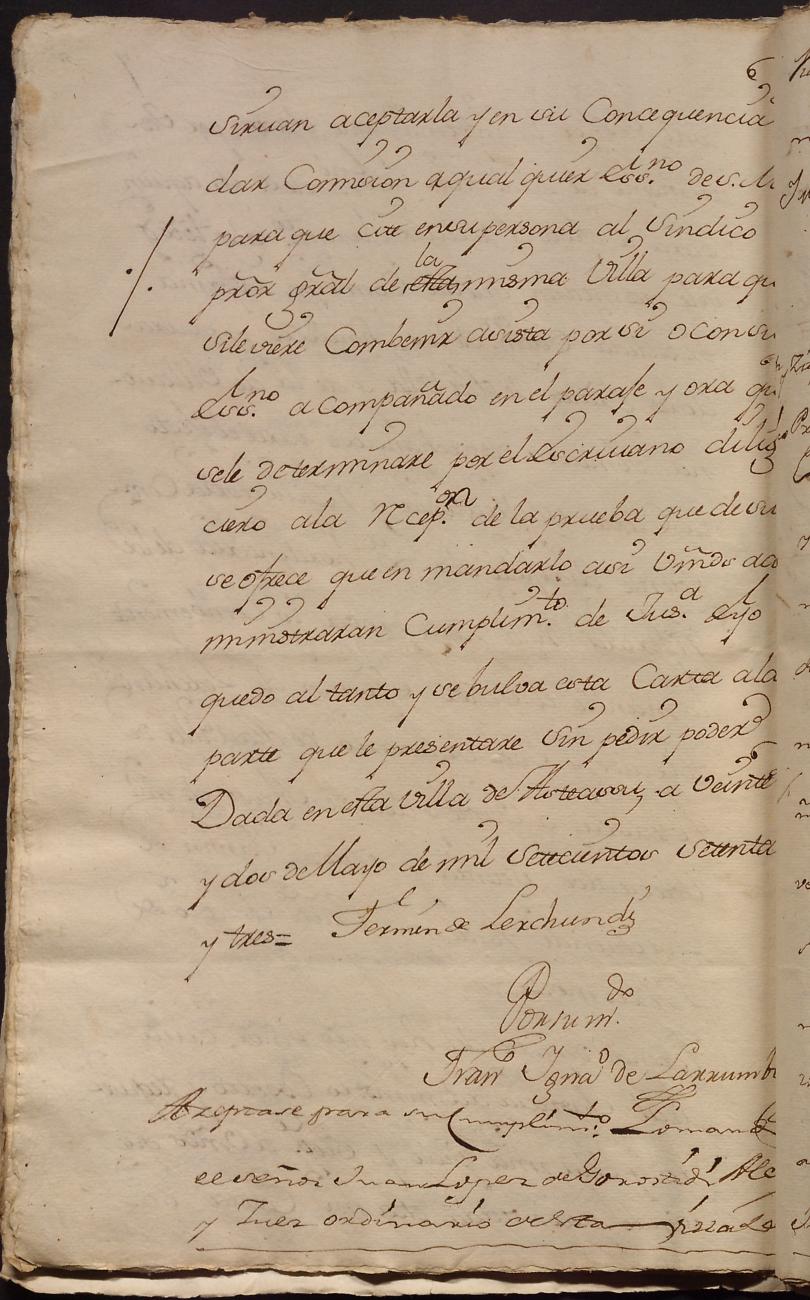 6
siruan aceptarla y en su Concequencia
dar Comision aqual quier Ess.no de S. M
para que cite ensupersona al Sindico
prõr grãl de la esta misma Villa para qu
sileviere Combenir asista por si o con su
Ess.no a compañado en el paraje y ora qu
sele determinare por el Escriuano dilig
ciero ala Rcep.on de la prueba que de su
se ofrece que en mandarlo asi Vm̃ds ad
ministraran Cumplim.to de Jus.a e yo
quedo al tanto y se bulva esta Carta ala
parte que le presentare sin pedir poder
Dada en esta Villa de Asteassu, a Veinte
y dos de Mayo de mil Settecientos Setenta
y tres= Fermin de Lerchundi
Porsum.do
Fran.co Igna.o de Larrumb
Azeptase para su Cumplim.to Lo mand
el señor Juan Lopez de Gorostidi Alc
y Juez ordinario de esta villa de